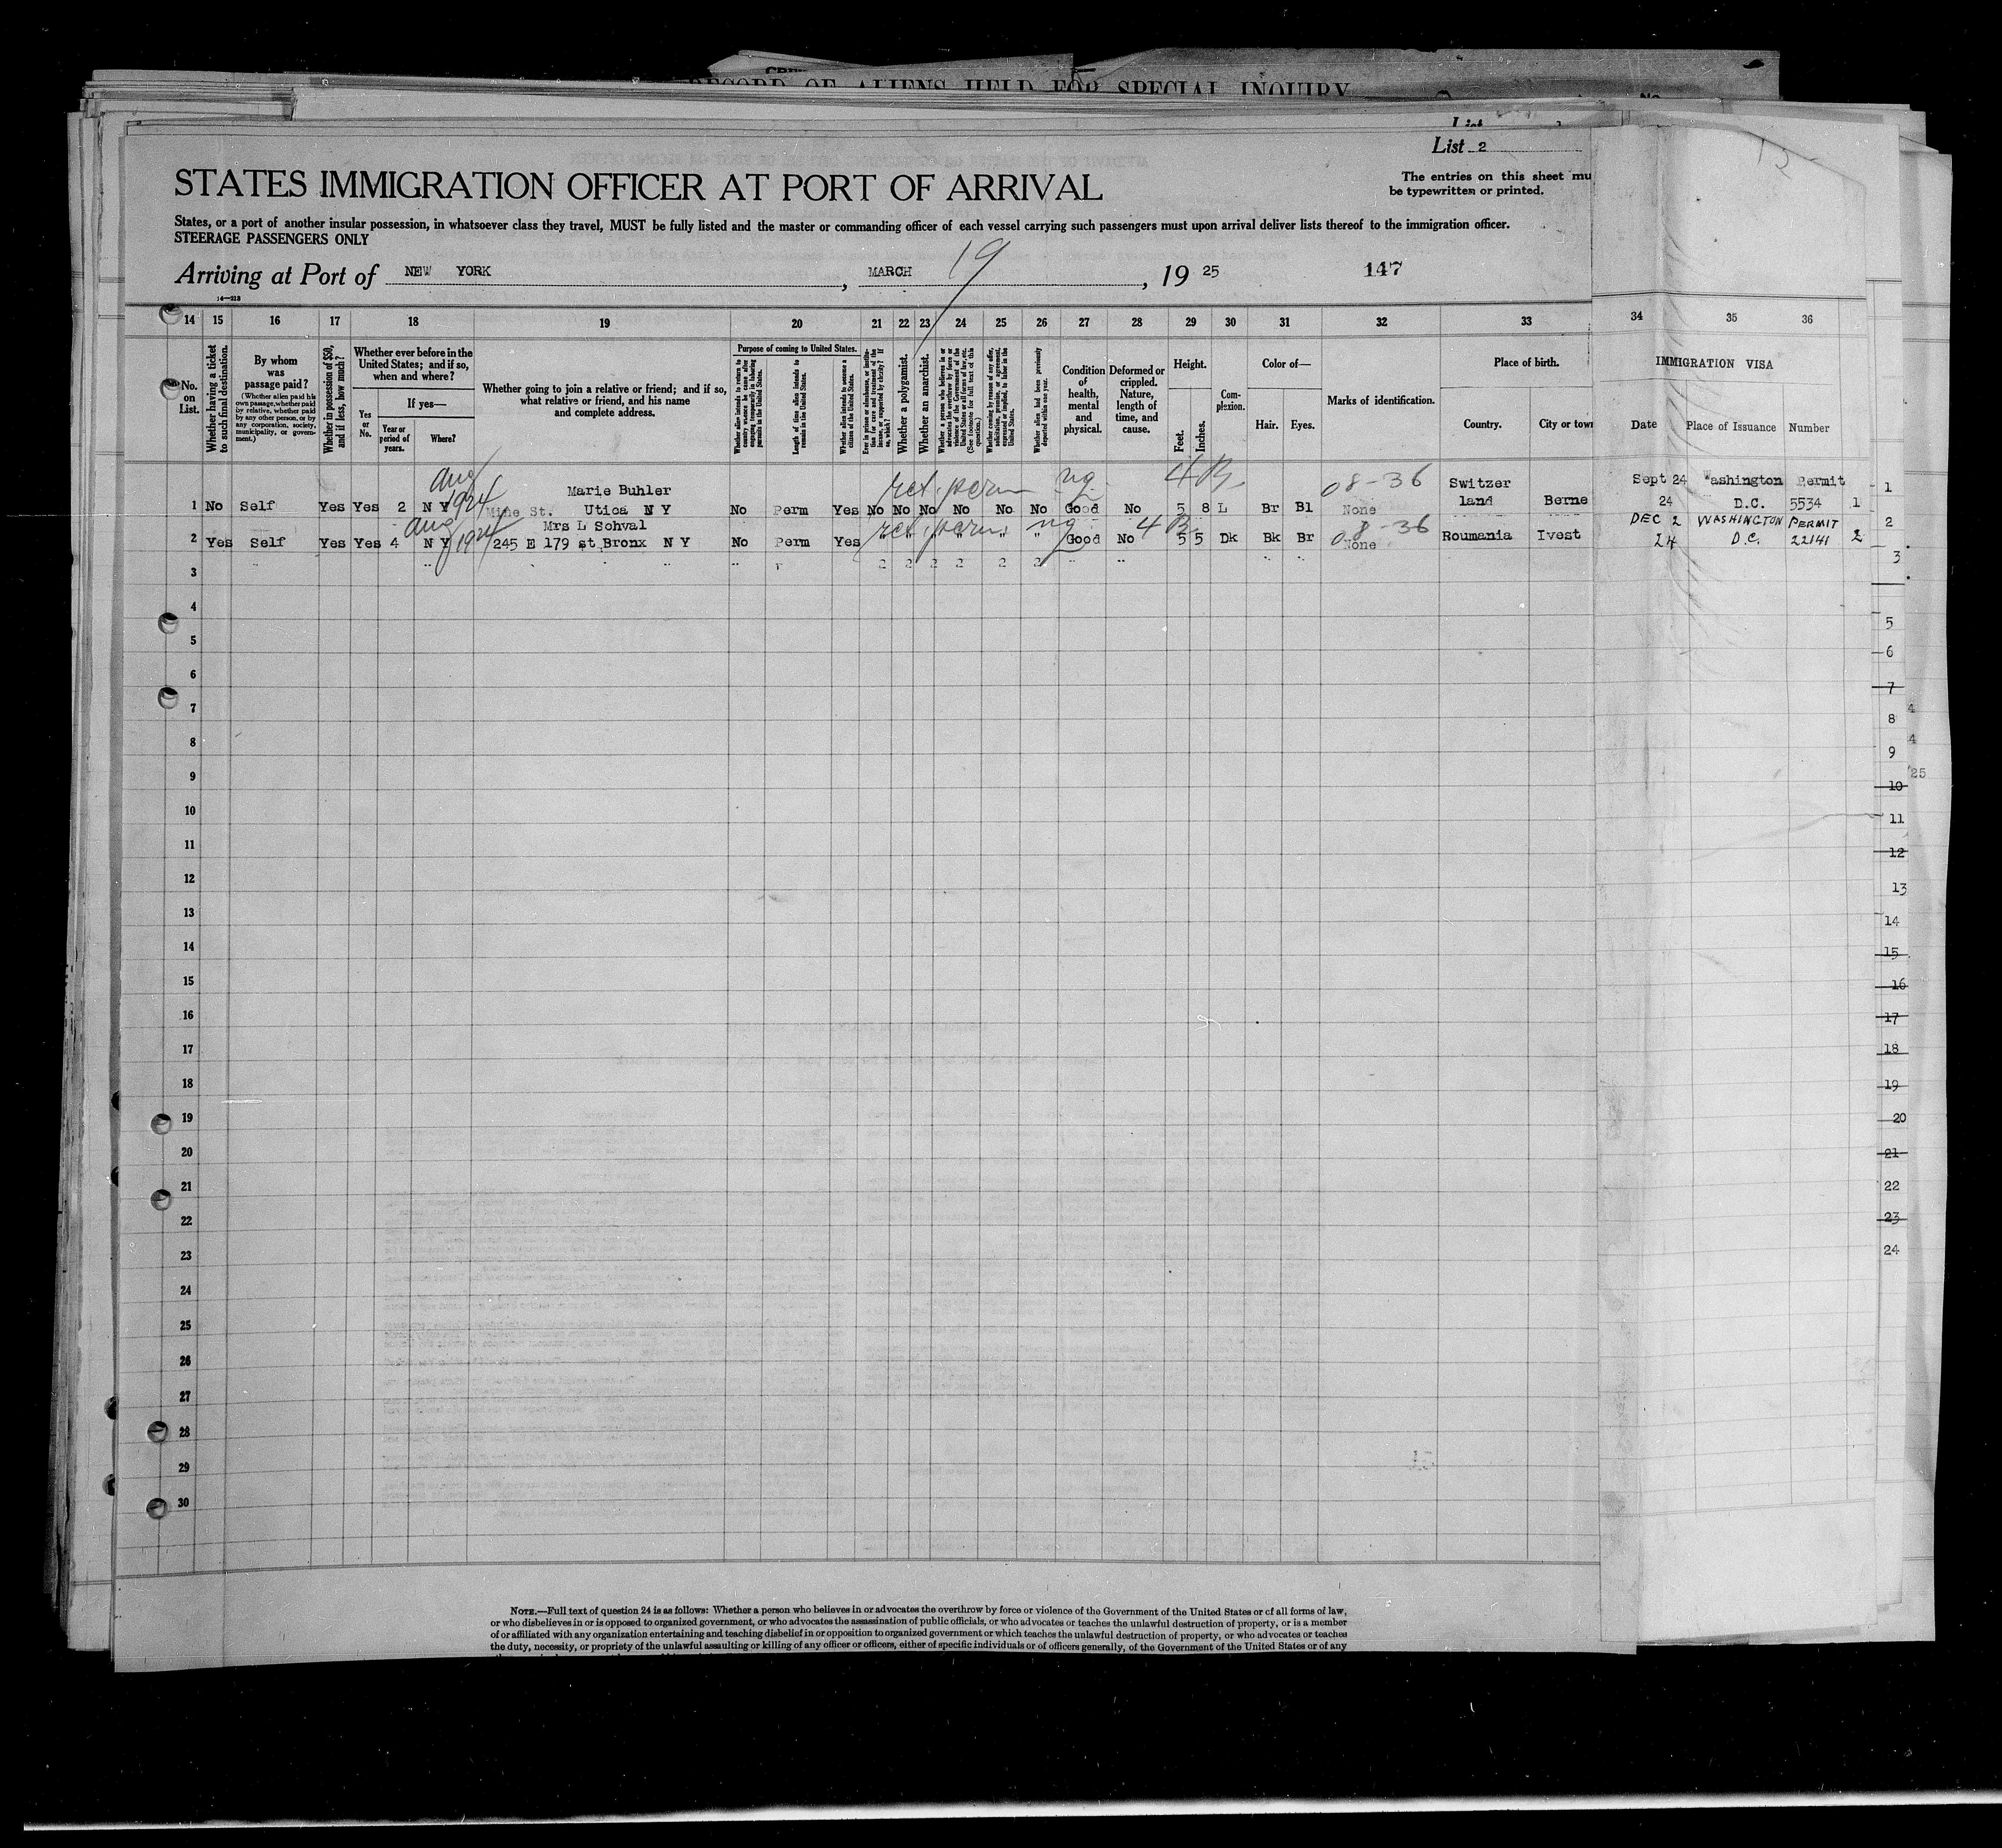 RECORD OF ALIENS HELD FOR SPECIAL INQUIRY
List 2
STATES IMMIGRATION OFFICER AT PORT OF ARRIVAL
The entries on this sheet mu
be typewritten or printed.
States, or a port of another insular possession, in whatsoever class they travel, MUST be fully listed and the master or commanding officer of each vessel carrying such passengers must upon arrival deliver lists thereof to the immigration officer.
STEERAGE PASSENGERS ONLY
Arriving at Port of NEW YORK, MARCH 19, 19 25 147
14 15 16 17 18 19 20 21 22 23 24 25 26 27 28 29 30 31 32 33 34 35 36
No. on List.
Whether having a ticket to such final destination.
By whom was passage paid?
(Whether alien paid his own passage, whether paid by relative, whether paid by any other person, or by any corporation, society, municipality, or government.)
Whether in possession of $50, and if less, how much?
Whether ever before in the United States; and if so, when and where?
If yes—
Yes or No.
Year or period of years.
Where?
Whether going to join a relative or friend; and if so, what relative or friend, and his name and complete address.
Purpose of coming to United States.
Length of time alien intends to remain in the United States.
Whether alien intends to become a citizen of the United States.
Whether a polygamist.
Whether an anarchist.
Whether alien had been previously deported within one year.
Condition of health, mental and physical.
Deformed or crippled. Nature, length of time, and cause.
Height.
Feet.
Inches.
Complexion.
Color of—
Hair.
Eyes.
Marks of identification.
Place of birth.
Country.
City or town
IMMIGRATION VISA
Date Place of Issuance Number
Aug 1924 Marie Buhler ret. perm ng 4 B 08-36 Switzer Sept 24 Washington Permit
1 No Self Yes Yes 2 N Y Mine St. Utica N Y No Perm Yes No No No No No No Good No 5 8 L Br Bl None land Berne 24 D.C. 5534 1
Aug 1924 Mrs L Sohval ret. perm ng 4 B 08-36 DEC 2 WASHINGTON PERMIT
2 Yes Self Yes Yes 4 N Y 245 E 179 st Bronx N Y No Perm Yes " " " " " " Good No 5 5 Dk Bk Br None Roumania Ivest 24 D.C. 22141 2
3
4
5
6
7
8
9
10
11
12
13
14
15
16
17
18
19
20
21
22
23
24
25
26
27
28
29
30
1
2
3
5
6
7
8
9
10
11
12
13
14
15
16
17
18
19
20
21
22
23
24
NOTE.—Full text of question 24 is as follows: Whether a person who believes in or advocates the overthrow by force or violence of the Government of the United States or of all forms of law,
or who disbelieves in or is opposed to organized government, or who advocates the assassination of public officials, or who advocates or teaches the unlawful destruction of property, or is a member
of or affiliated with any organization entertaining and teaching disbelief in or opposition to organized government or which teaches the unlawful destruction of property, or who advocates or teaches
the duty, necessity, or propriety of the unlawful assaulting or killing of any officer or officers, either of specific individuals or of officers generally, of the Government of the United States or of any